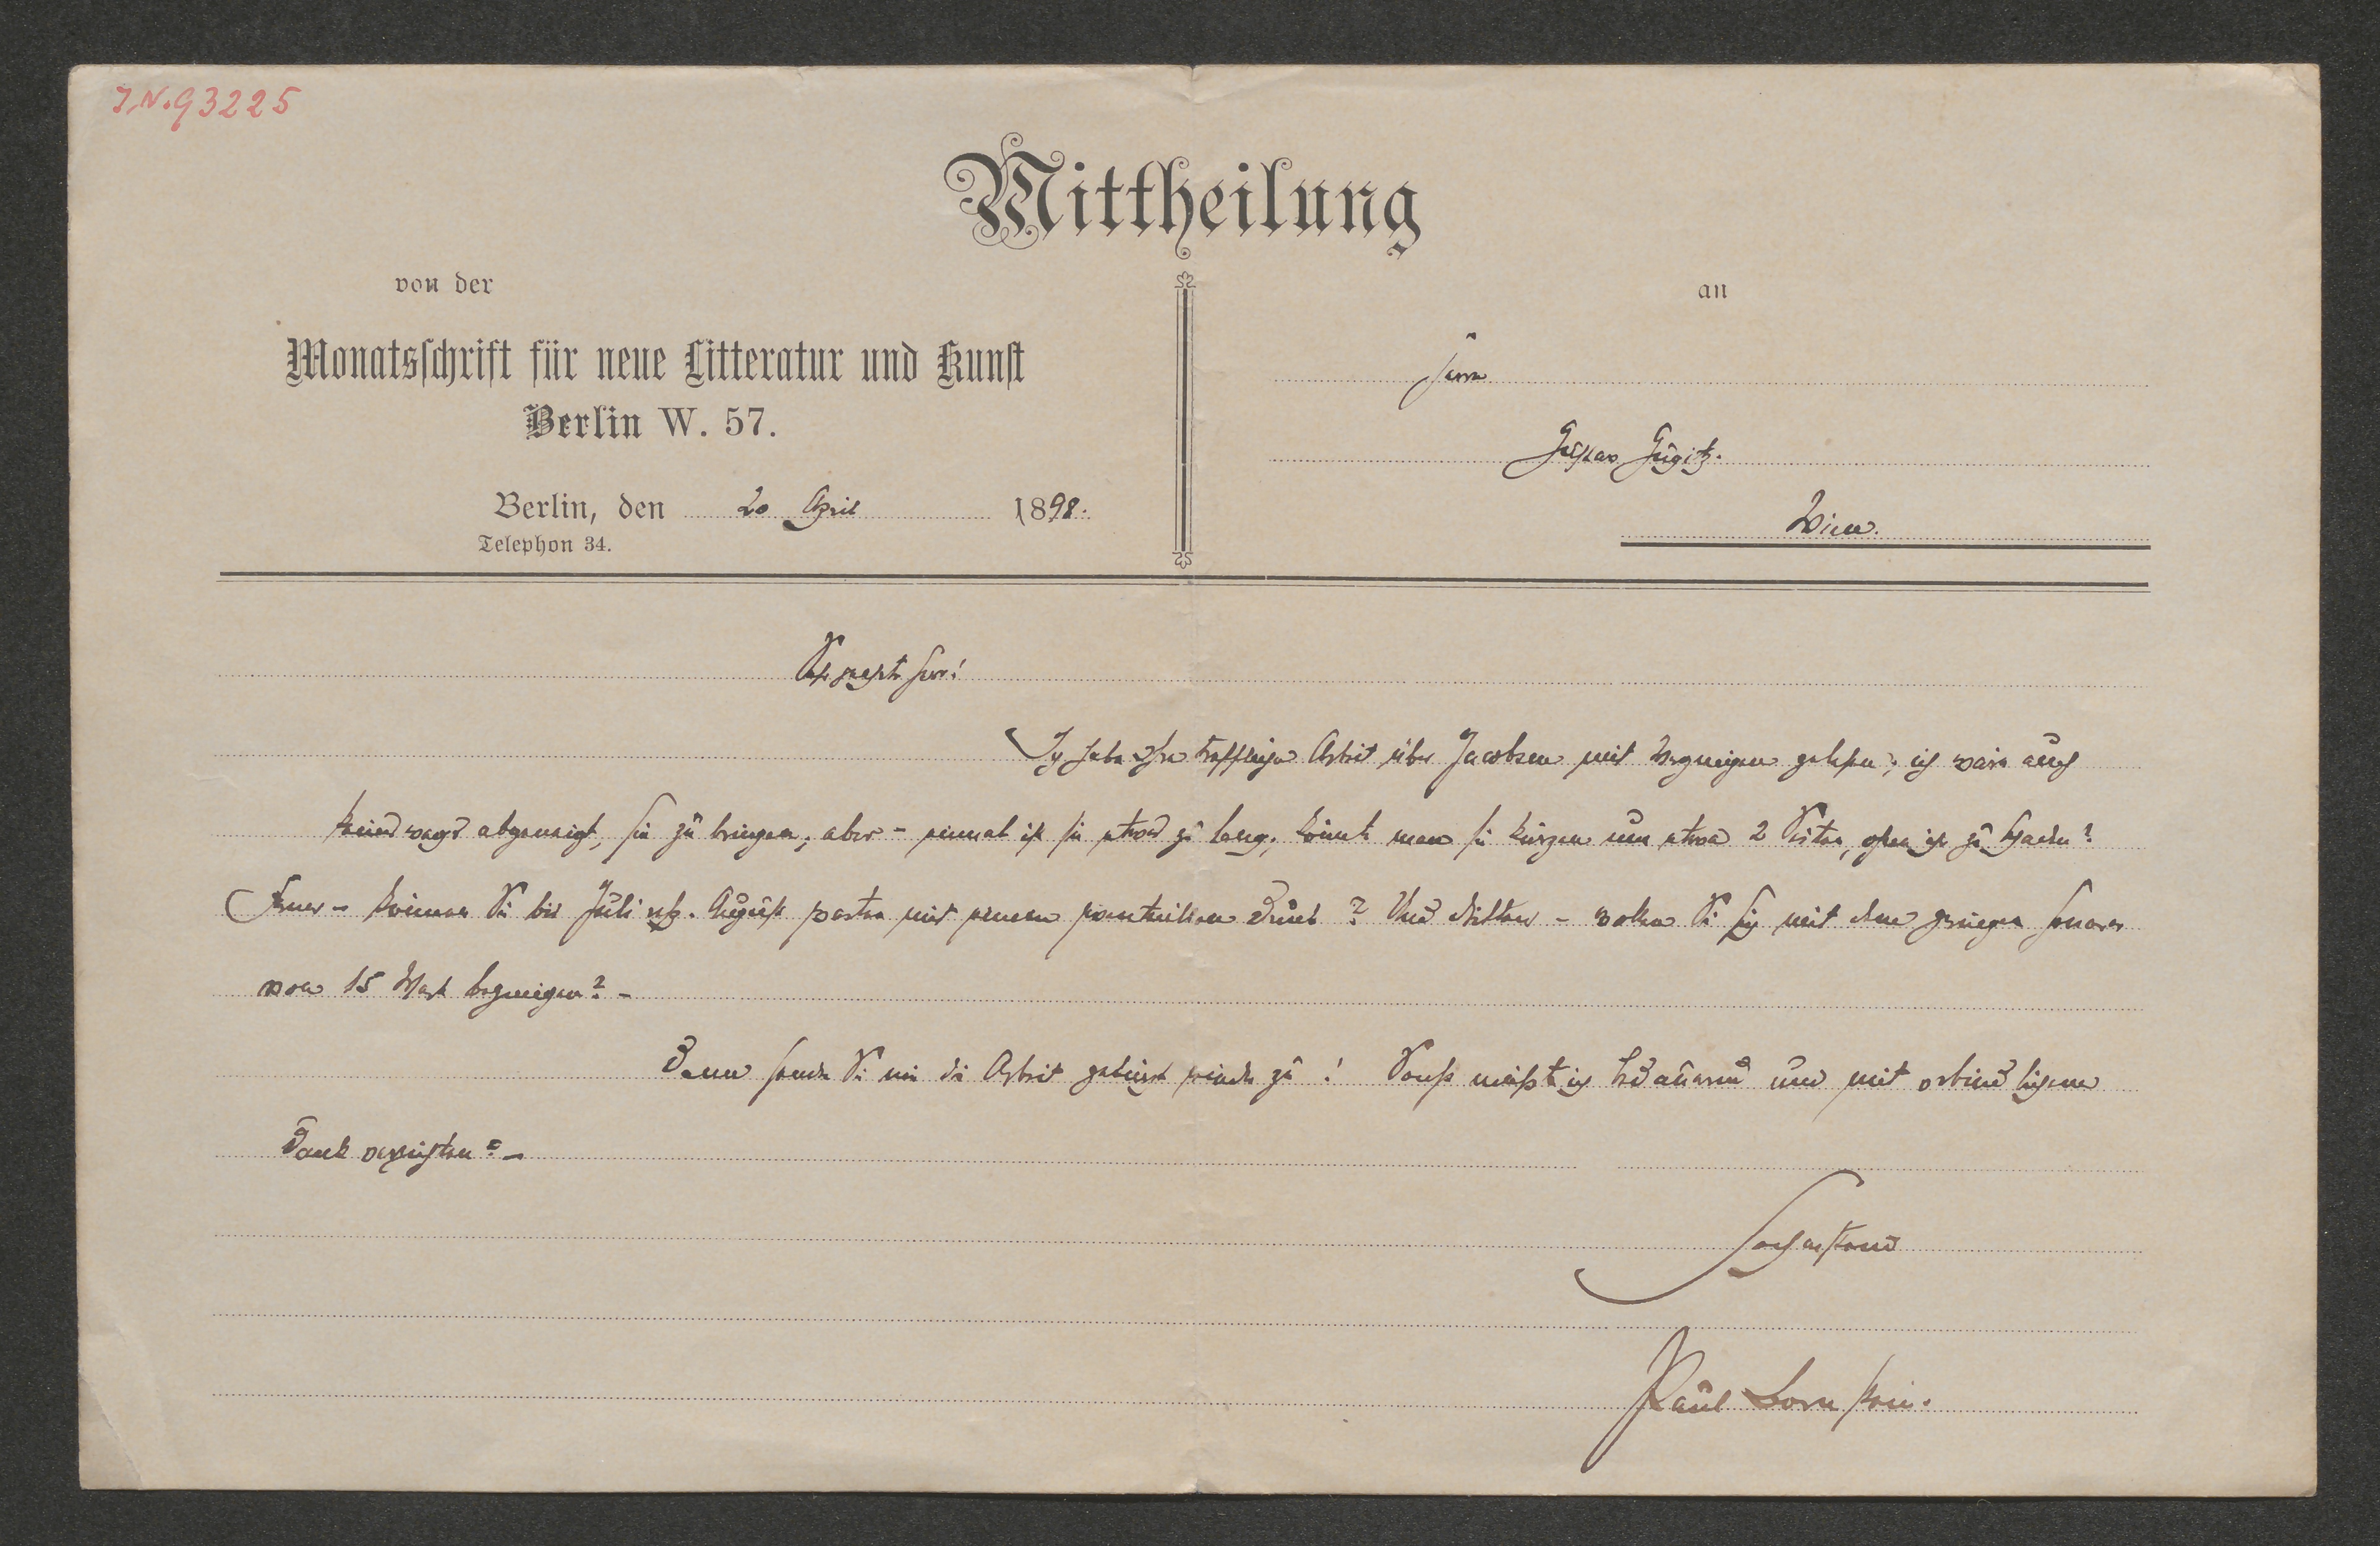 I.N. 93225
Mittheilung
von der
an
Monatsschrift für neue Litteratur und Kunst
Berlin W. 57.
Berlin, den 20 April 1898.
Telephon 34.
Herrn
Gustav Gugitz.
Wien.
Sehr geehrter Herr!
Ich habe Ihre treffliche Arbeit über Jacobsen mit Vergnügen gelesen; ich wäre auch
keineswegs abgeneigt, sie zu bringen, aber – einmal ist sie etwas zu lang; könnte man sie kürzen um etwa 2 Seiten, ohne ihr zu schaden?
Ferner – können Sie bis Juli resp. August warten mit einem eventuellen Druck? Und drittens – wollen Sie sich mit dem geringen Honorar
von 15 Mark begnügen? –
Dann senden Sie mir die Arbeit gekürzt wieder zu! Sonst müßte ich bedauernd und mit verbindlichem
Dank verzichten. –
Hochachtend
Paul Bornstein.